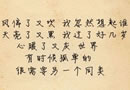 风停了又吹 我忽然想起谁
天亮了又黑 我过了好几岁
心暖了又灰 世界
有时候孤单的
很需要另一个同类